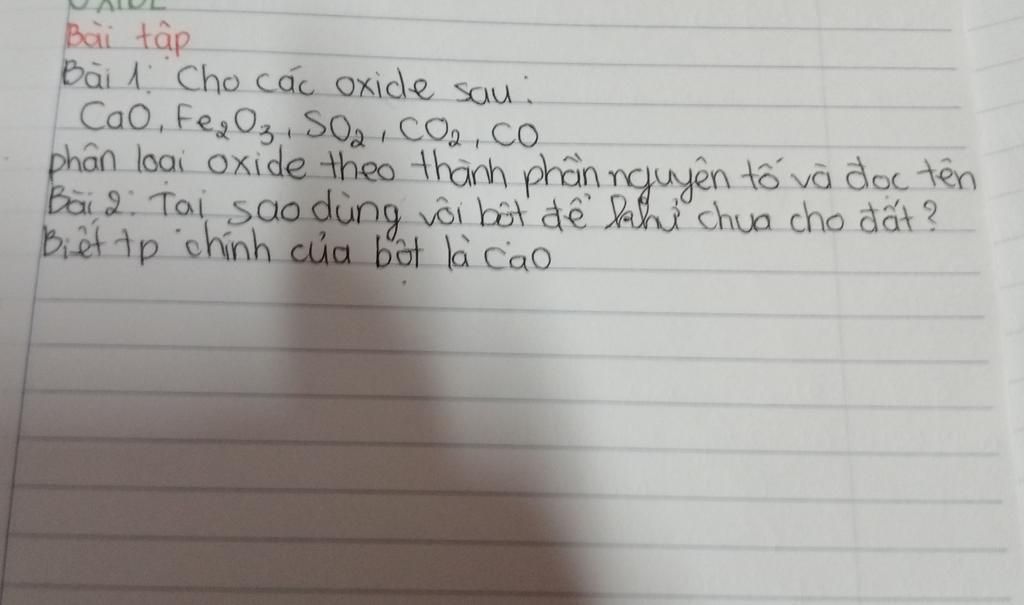 OXIDE
Bài tập
Bài 1: Cho các oxide sau:
CaO, Fe₂O₃, SO₂, CO₂, CO
phân loại oxide theo thành phần nguyên tố và đọc tên
Bài 2: Tại sao dùng vôi bột để khử chua cho đất?
Biết tp chính của bột là CaO